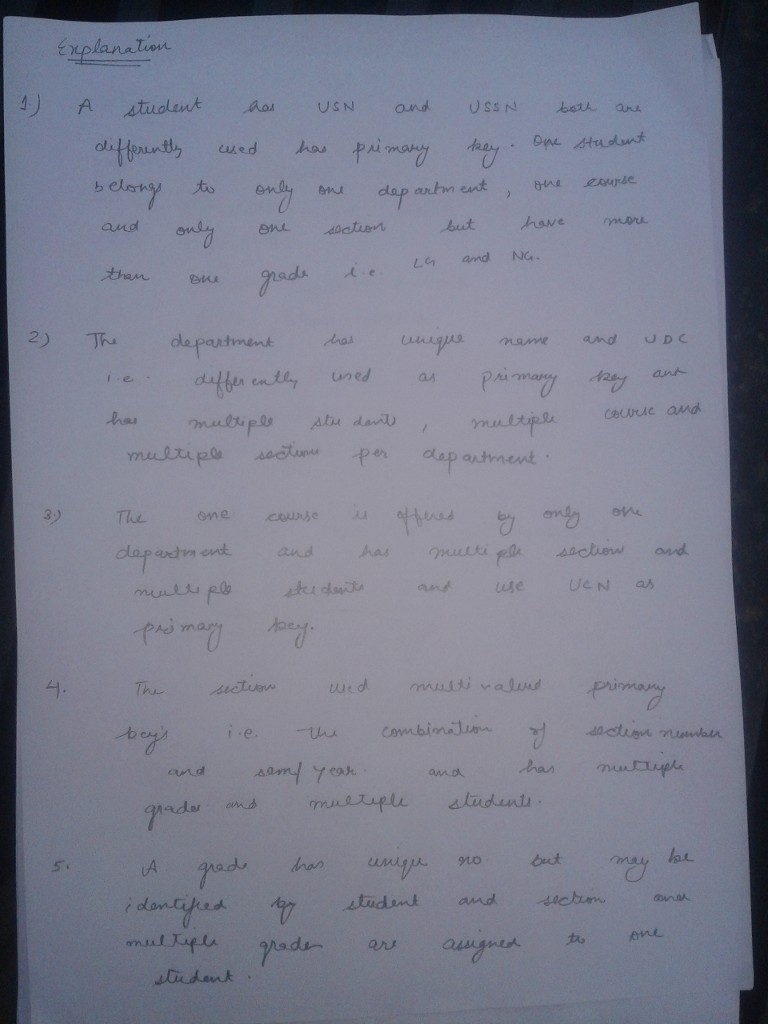 Explanation
1.) A student has USN and USSN both are
differently used has primary key. One student
belongs to only one department, one course
and only one section but have more
than one grade i.e. LG and NG.
2) The department has unique name and UDC
i.e. differently used as primary key and
has multiple students, multiple course and
multiple section per department.
3.) The one course is offered by only one
department and has multiple section and
multiple students and use UCN as
primary key.
4. The section used multivalued primary
key's i.e. the combination of section number
and sem/year and has multiple
grades and multiple students.
5. A grade has unique no but may be
identified by student and section and
multiple grades are assigned to one
student.